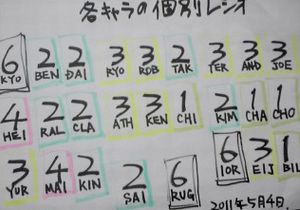 各キャラの個別レシオ
6 2 2 3 3 2 3 3 3
KYO BEN DAI RYO ROB TAK TER AND JOE
4 2 2 3 3 1 2 1 1
HEI RAL CLA ATH KEN CHI KIM CHA CHO
3 4 2 2 6 6 3 1
YUR MAI KIN SAI RUG IOR EIJ BIL
2011年5月4日